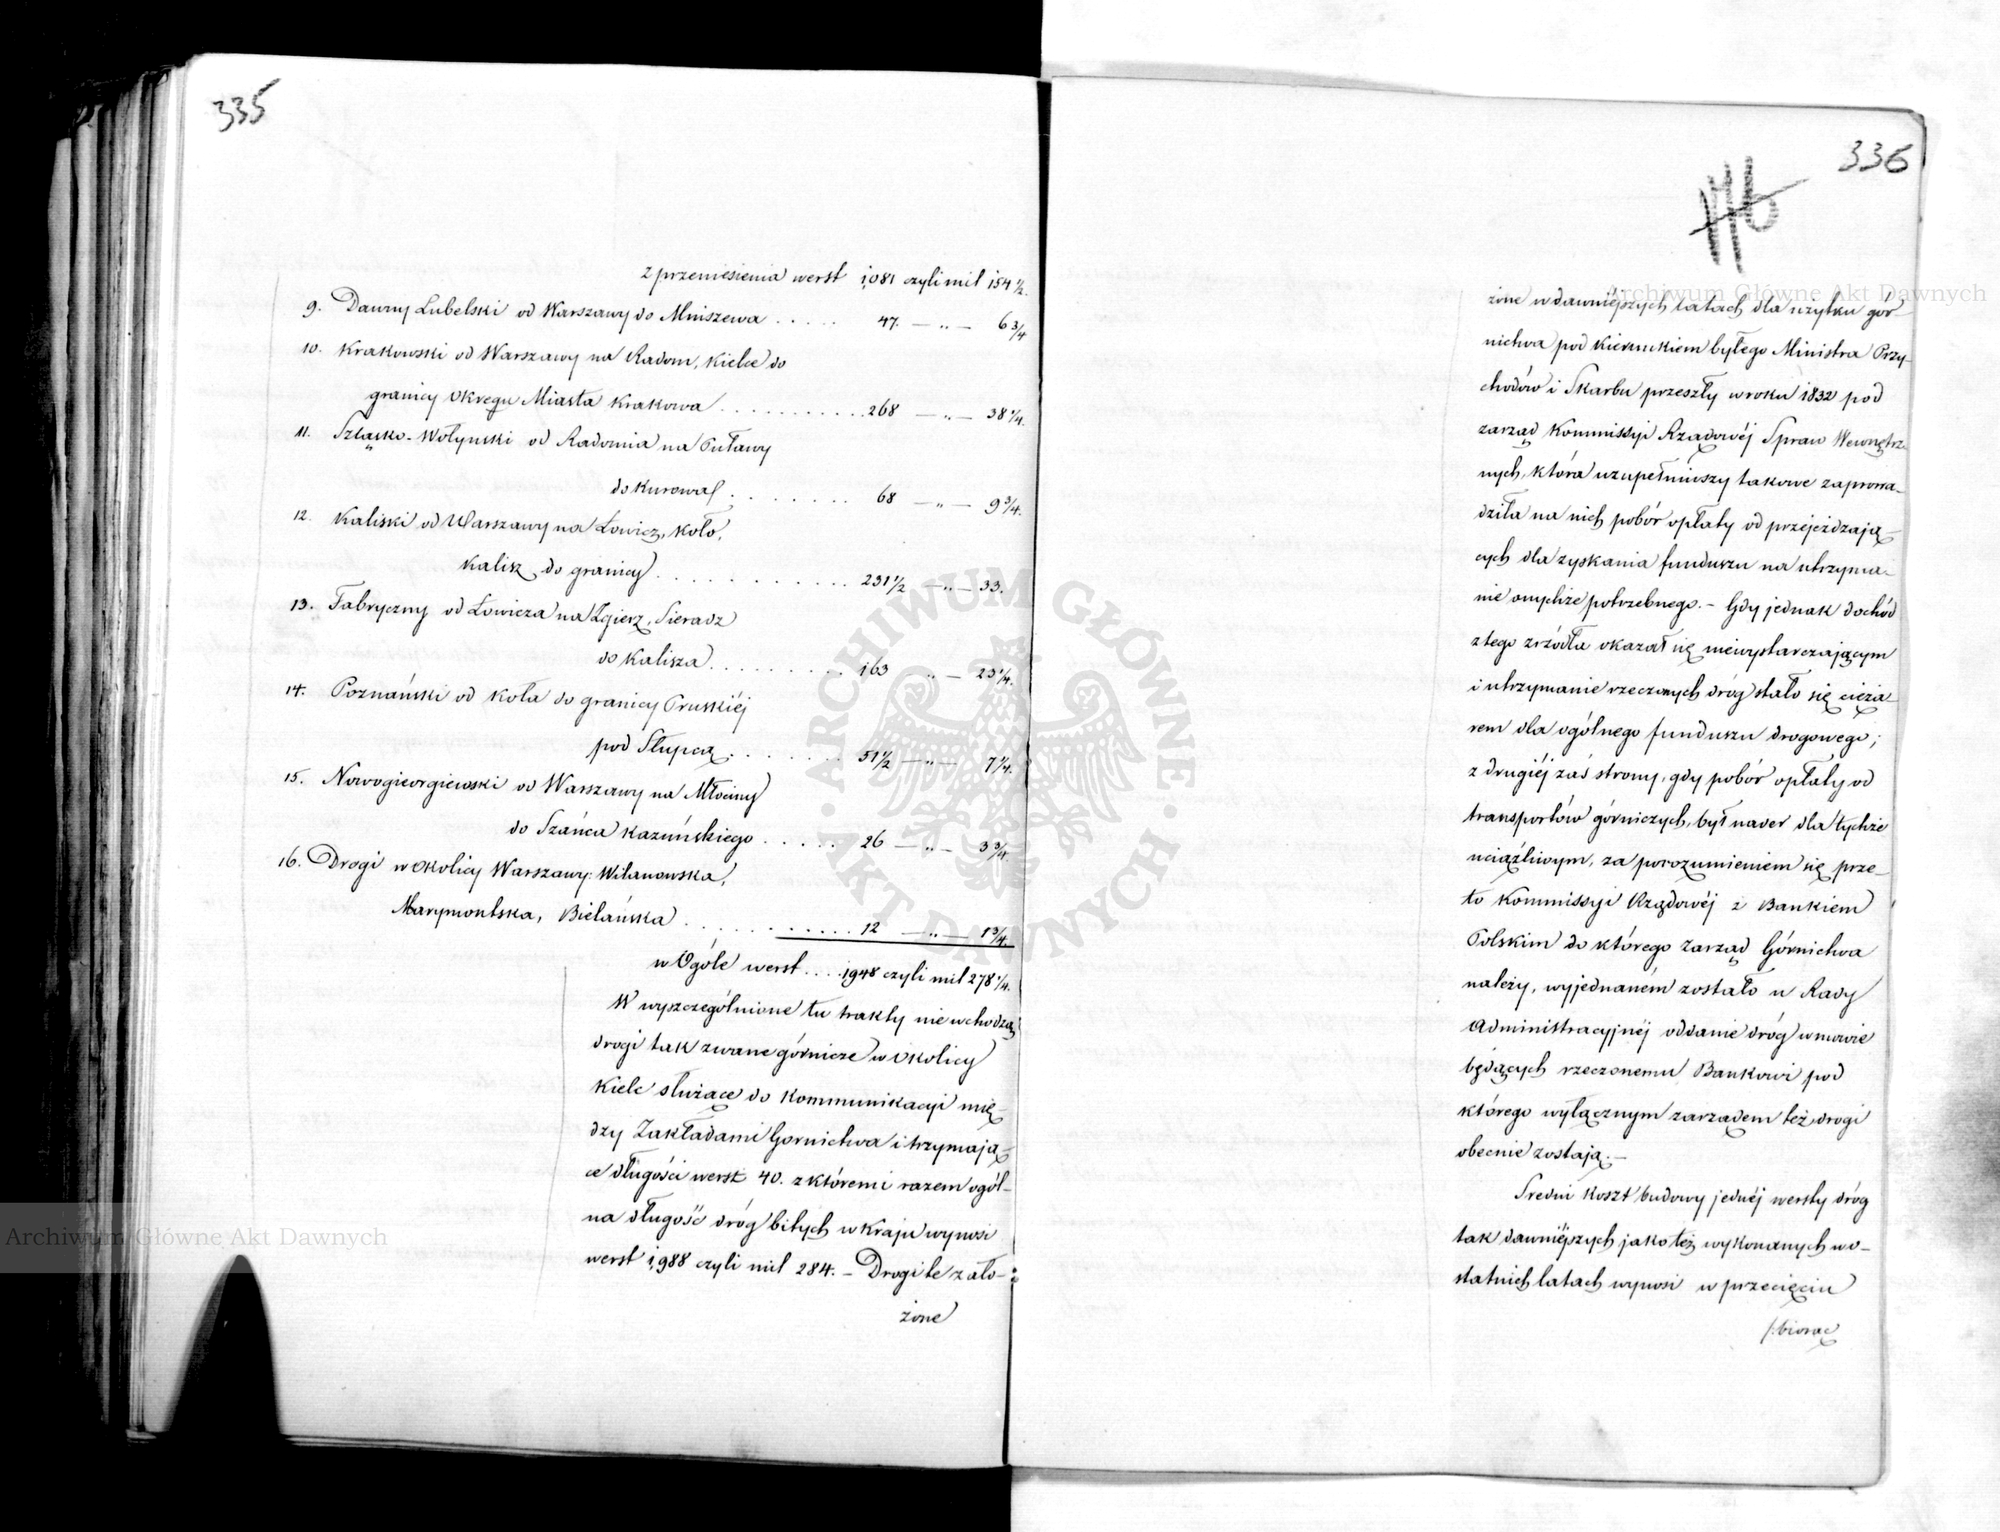 335
z przeniesienia werst 1,081 czyli mil 154 1/2.
9. Dawny Lubelski od Warszawy do Mniszewa . . . . . 47. — „ — 6 3/4
10. Krakowski od Warszawy na Radom, Kielce do
granicy Okręgu Miasta Krakowa . . . . . . . . . . . 268 — „ — 38 1/4.
11. Szląsko-Wołyński od Radomia na Puławy
do Kurowa . . . . . . . . 68 — „ — 9 3/4.
12. Kaliski od Warszawy na Łowicz, Koło,
Kalisz do granicy . . . . . . . . . . . . 231 1/2 — „ — 33.
13. Fabryczny od Łowicza na Zgierz, Sieradz
do Kalisza . . . . . . . . . 163 „ — 23 1/4.
14. Poznański od Koła do granicy Pruskiéj
pod Słupcą . . . . . . . . 51 1/2 — „ — 7 1/4.
15. Nowogieorgiewski od Warszawy na Młociny
do Szańca Kazuńskiego . . . . . 26 — „ — 3 3/4.
16. Drogi w okolicy Warszawy: Wilanowska,
Marymontska, Bielańska . . . . . . . . . . . 12 — „ — 1 3/4.
w Ogóle werst . . . . 1,948 czyli mil 278 1/4.
W wyszczególnione tu trakty nie wchodzą
drogi tak zwane górnicze w okolicy
Kielc służące do kommunikacyi mię-
dzy Zakładami Gornictwa i trzymają-
ce długości werst 40. z któremi razem ogól-
na długość dróg bitych w Kraju wynosi
werst 1,988 czyli mil 284. – Drogi te zało-
żone
336
176
żone w dawniejszych latach dla użytku gór
nictwa pod kierunkiem byłego Ministra Przy-
chodów i Skarbu przeszły w roku 1832 pod
zarząd Kommissyi Rządowéj Spraw Wewnętrz-
nych, która uzupełniwszy takowe zaprowa-
dziła na nich pobór opłaty od przejeżdzają-
cych dla zyskania funduszu na utrzyma-
nie onychże potrzebnego. – Gdy jednak dochód
z tego zrzódła okazał się niewystarczającym
i utrzymanie rzeczonych dróg stało się cięża-
rem dla ogólnego funduszu drogowego;
z drugiéj zaś strony, gdy pobór opłaty od
transportów górniczych, był nader dla tychże
uciążliwym, za porozumieniem się prze-
to Kommissyi Rządowéj z Bankiem
Polskim do którego zarząd Górnictwa
należy, wyjednaném zostało u Rady
Administracyjnéj oddanie dróg w mowie
będących rzeczonemu Bankowi pod
którego wyłącznym zarządem też drogi
obecnie zostają. –
Sredni koszt budowy jednéj wersty dróg
tak dawniéjszych jako też wykonanych w o-
statnich latach wynosi w przecięciu
/:biorąc
Archiwum Główne Akt Dawnych
Archiwum Główne Akt Dawnych
· ARCHIWUM GŁÓWNE · AKT DAWNYCH